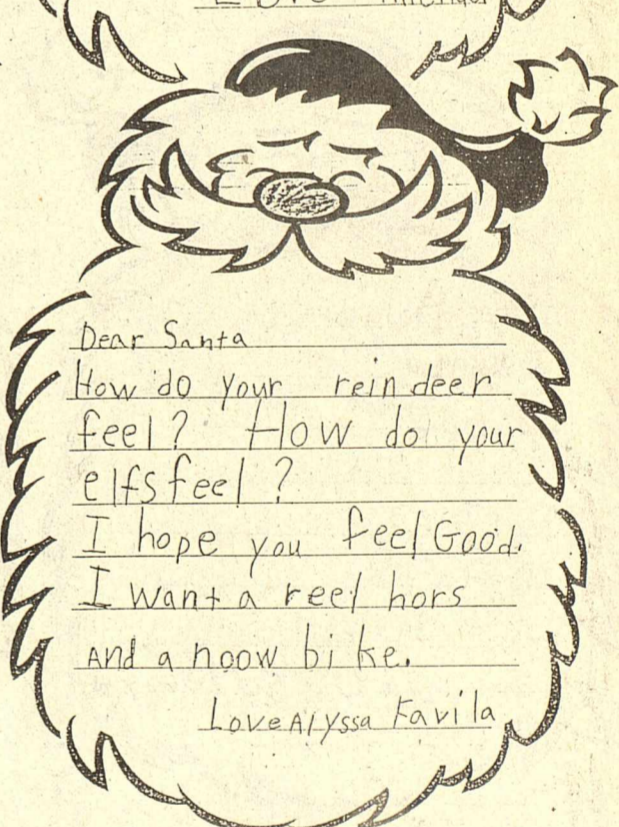 Dear Santa
How do your reindeer
feel? How do your
elfs feel?
I hope you feel Good.
I want a reel hors
And a noow bike.
Love Alyssa Favila